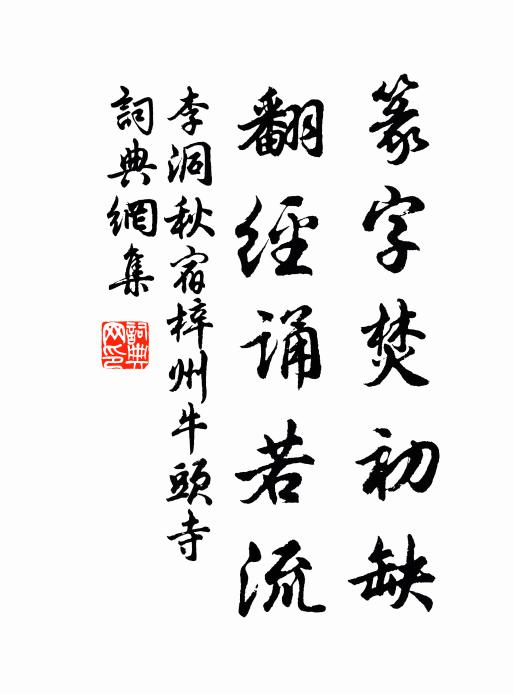 篆字焚初缺
翻經誦若流
李洞秋宿梓州牛頭寺
詞典網集
詞典网印